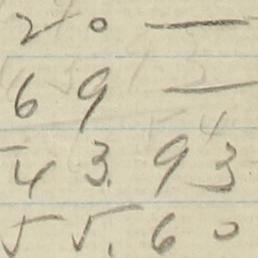 20 —
69 —
43.93
55.60